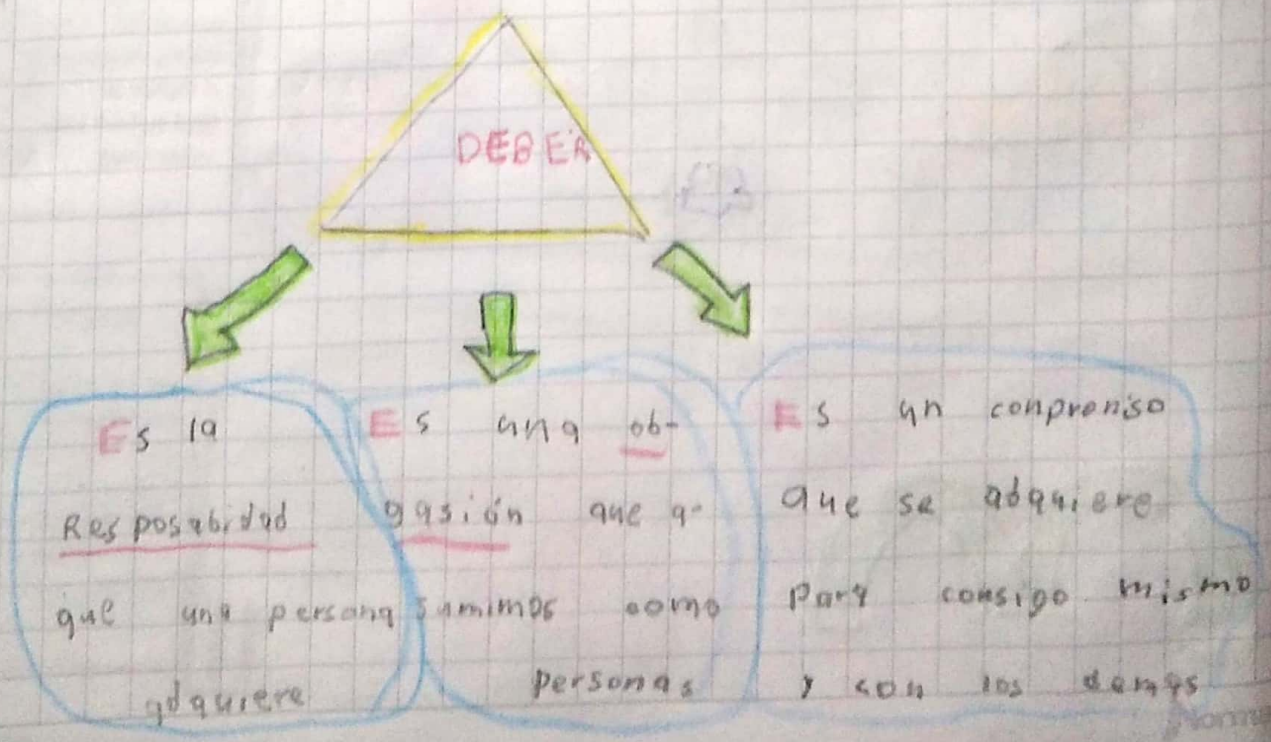 DEBER
Es la
Resposabidad
que una persona
adquiere
Es una ob-
gasión que a-
sumimos como
personas
Es un conproniso
que se adquiere
para consigo mismo
y con los demas
Norma